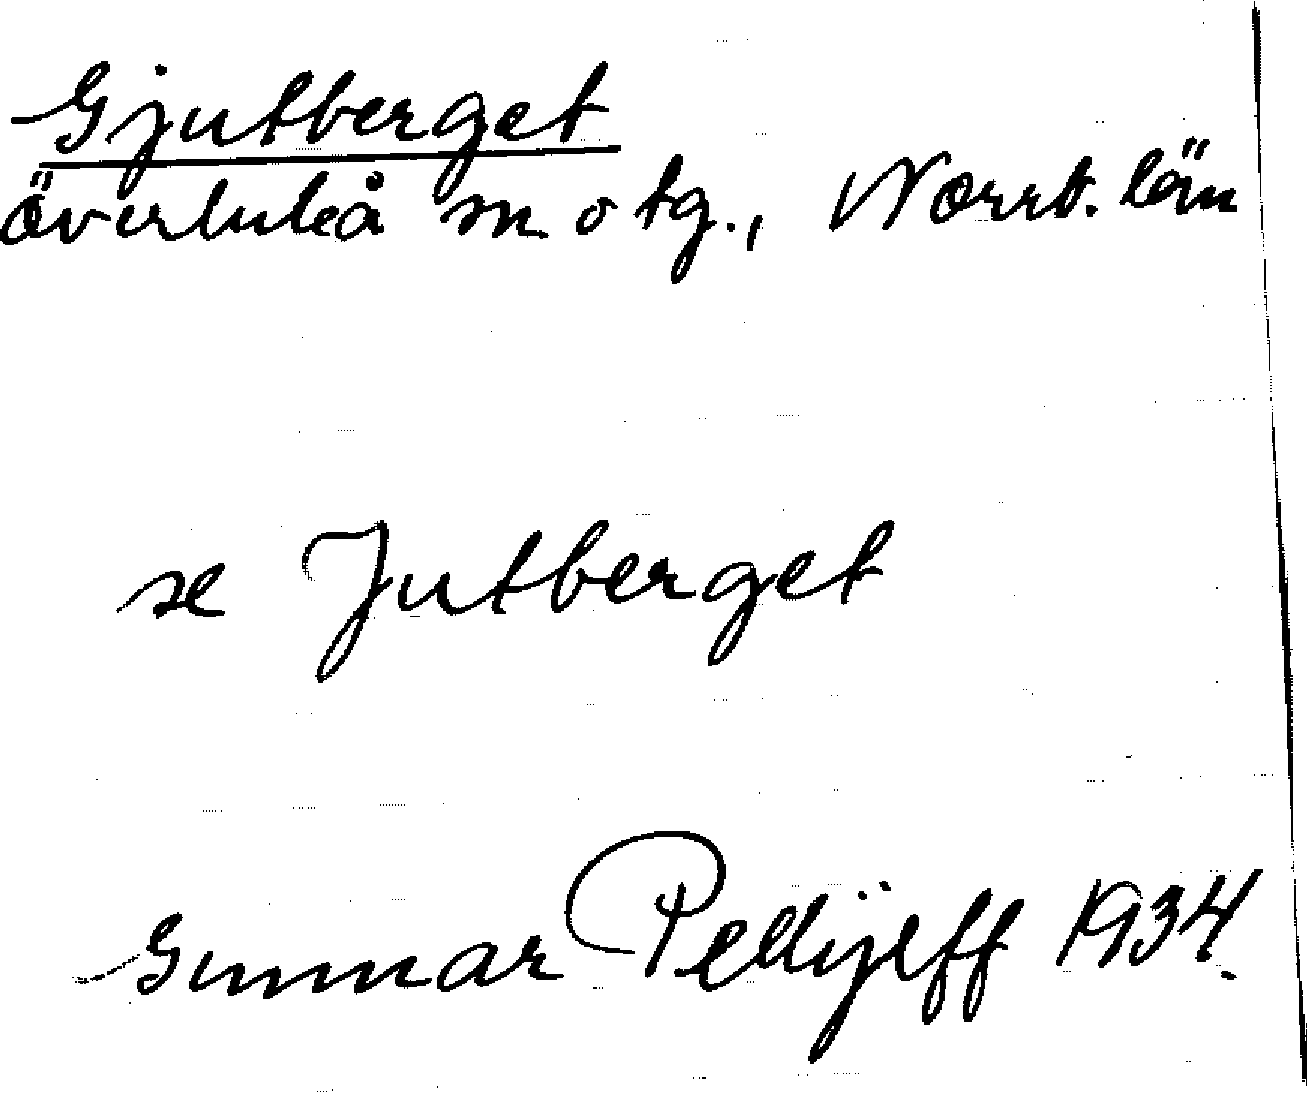 Gjutberget
överluleå sn. o tg., Norrb. län
se Jutberget
Gunnar Pellijeff 1934.